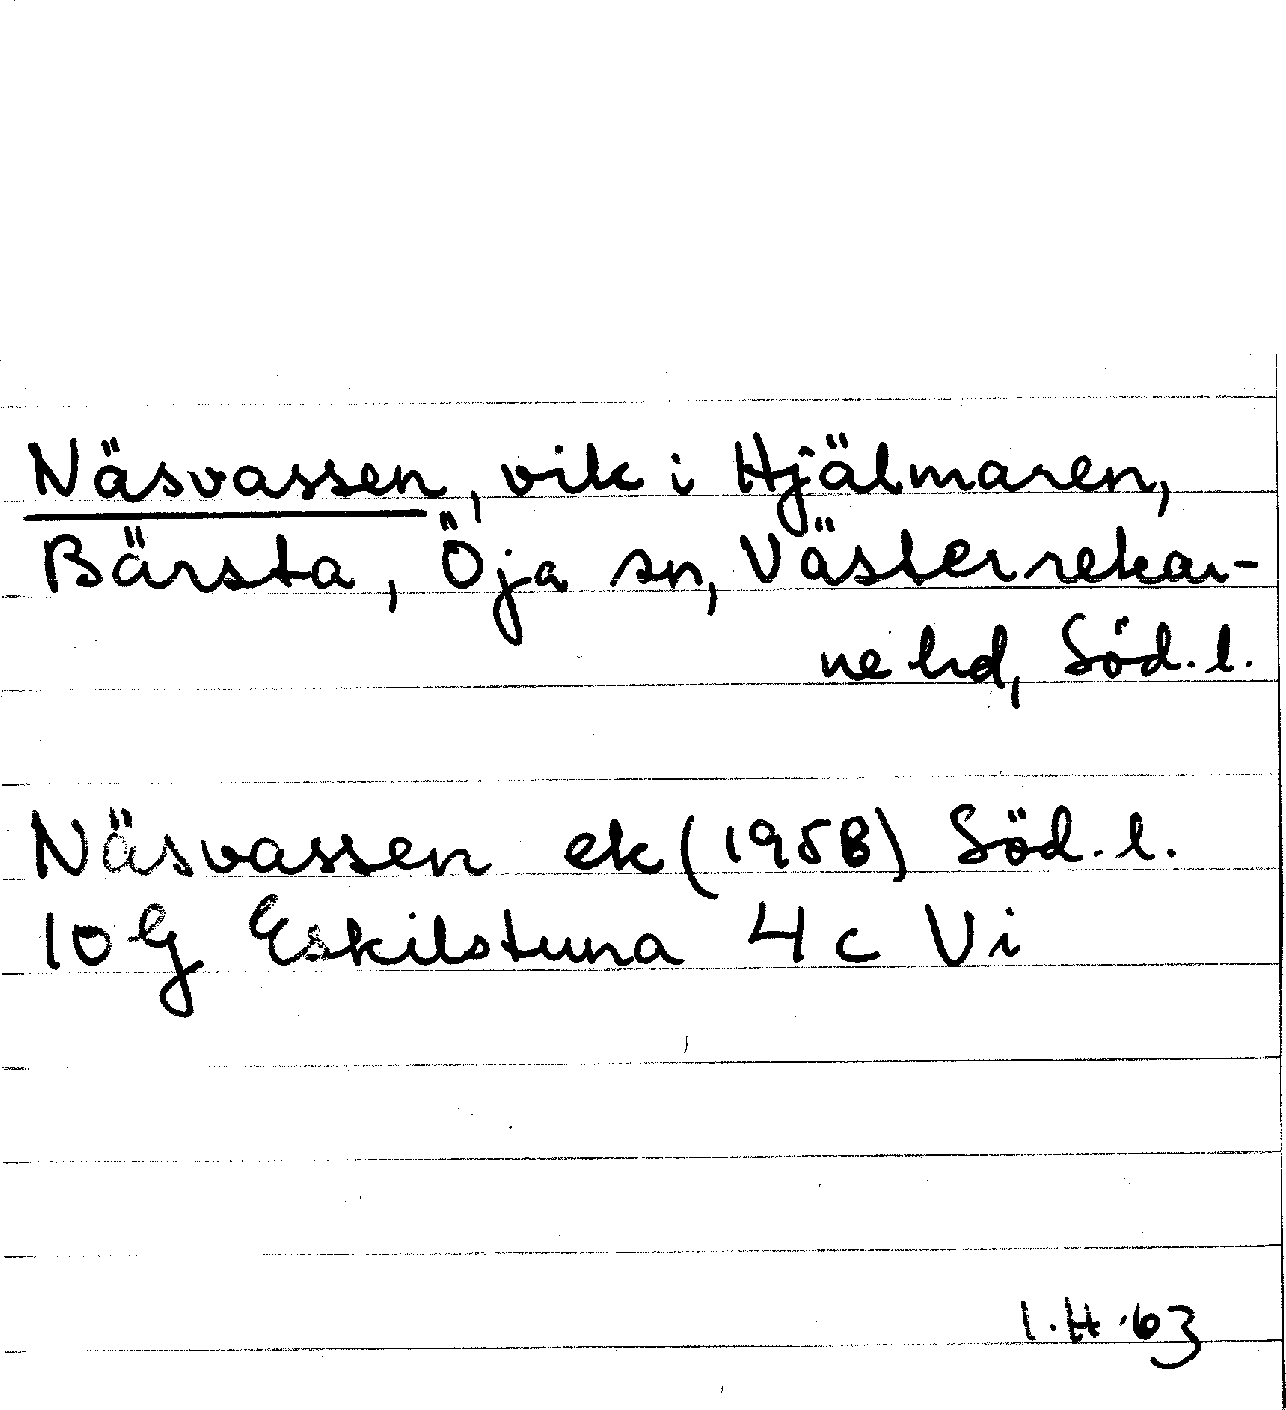 Näsvassen, vik i Hjälmaren,
Bärsta, Öja sn, Västerrekar-
ne hd, Söd. l.
Näsvassen ek (1958) Söd. l.
10 G Eskilstuna 4 c Vi
I.H. 63